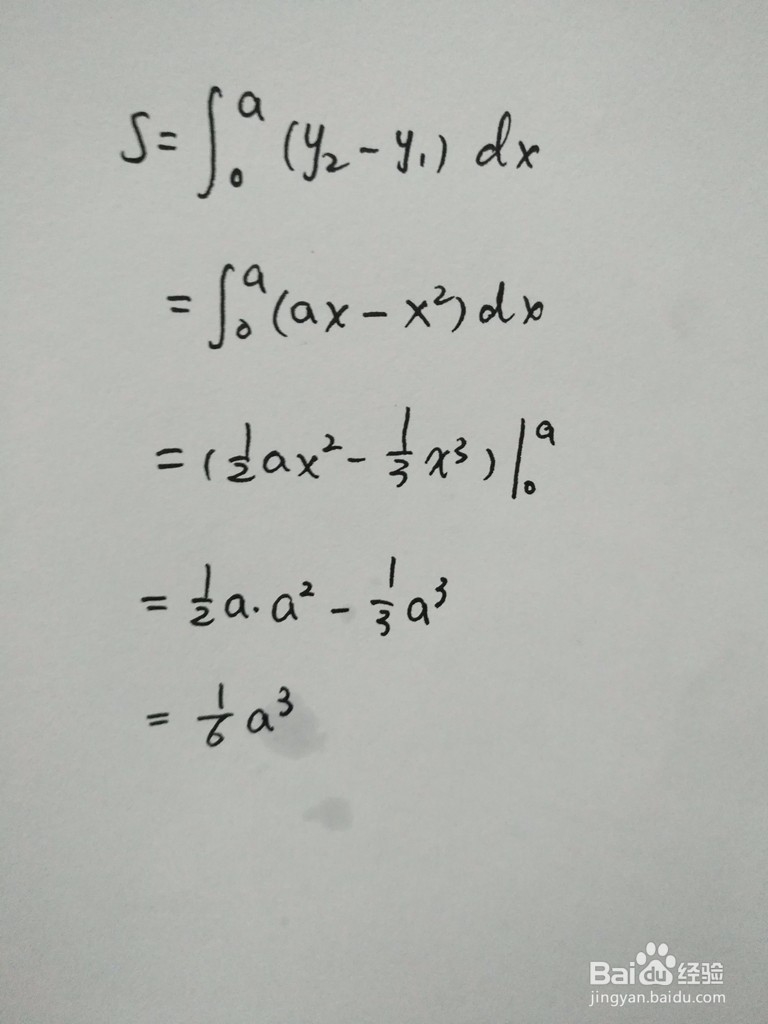 S = ∫₀ᵃ (y₂ - y₁) dx
= ∫₀ᵃ (ax - x²) dx
= (½ax² - ⅓x³) |₀ᵃ
= ½a·a² - ⅓a³
= ⅙a³
Baidu经验
jingyan.baidu.com